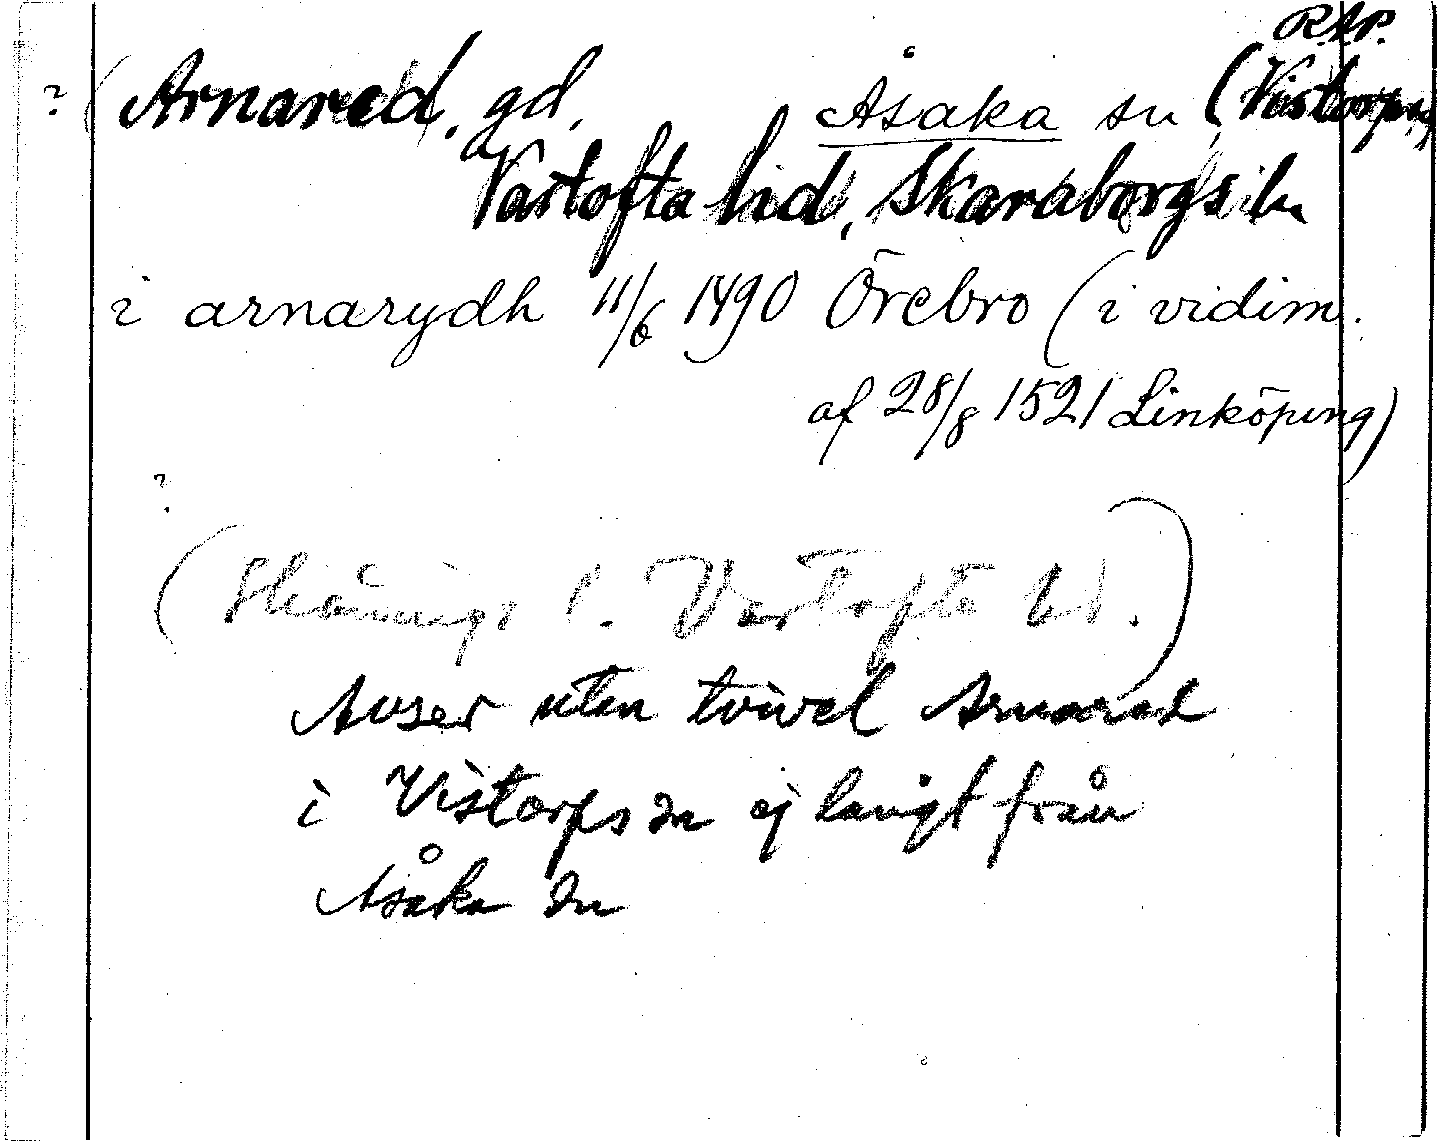 R.A.P.
? (Arnared, gd, Åsaka sn (Vistorps)
Vartofta hd, Skaraborgs län
i arnarydh 11/6 1490 Örebro (i vidim.
af 28/8 1521 Linköping)
?
( Vartofta hd.)
Avser utan tvivel Arnared
i Vistorps sn ej långt från
Åsaka sn